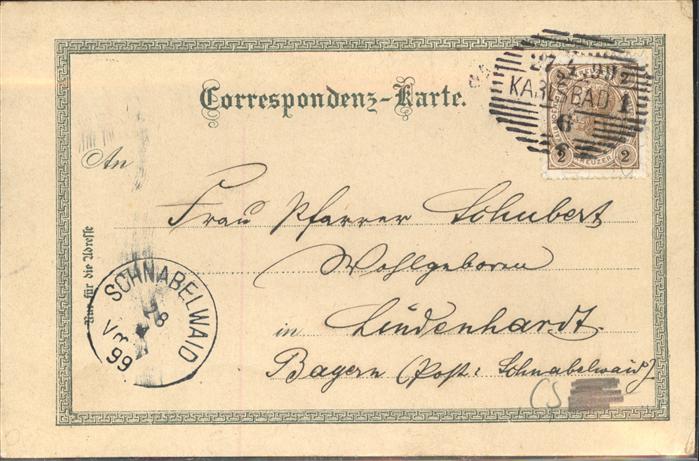 Correspondenz-Karte.
27.4.99
KARLSBAD 1
6
2 KREUZER 2
An
Frau Pfarrer Schubert
Wohlgeboren
in Lindenhardt
Bayern (Post: Schnabelwaid)
Nur für die Adresse
SCHNABELWAID
8
Vm
99
CS